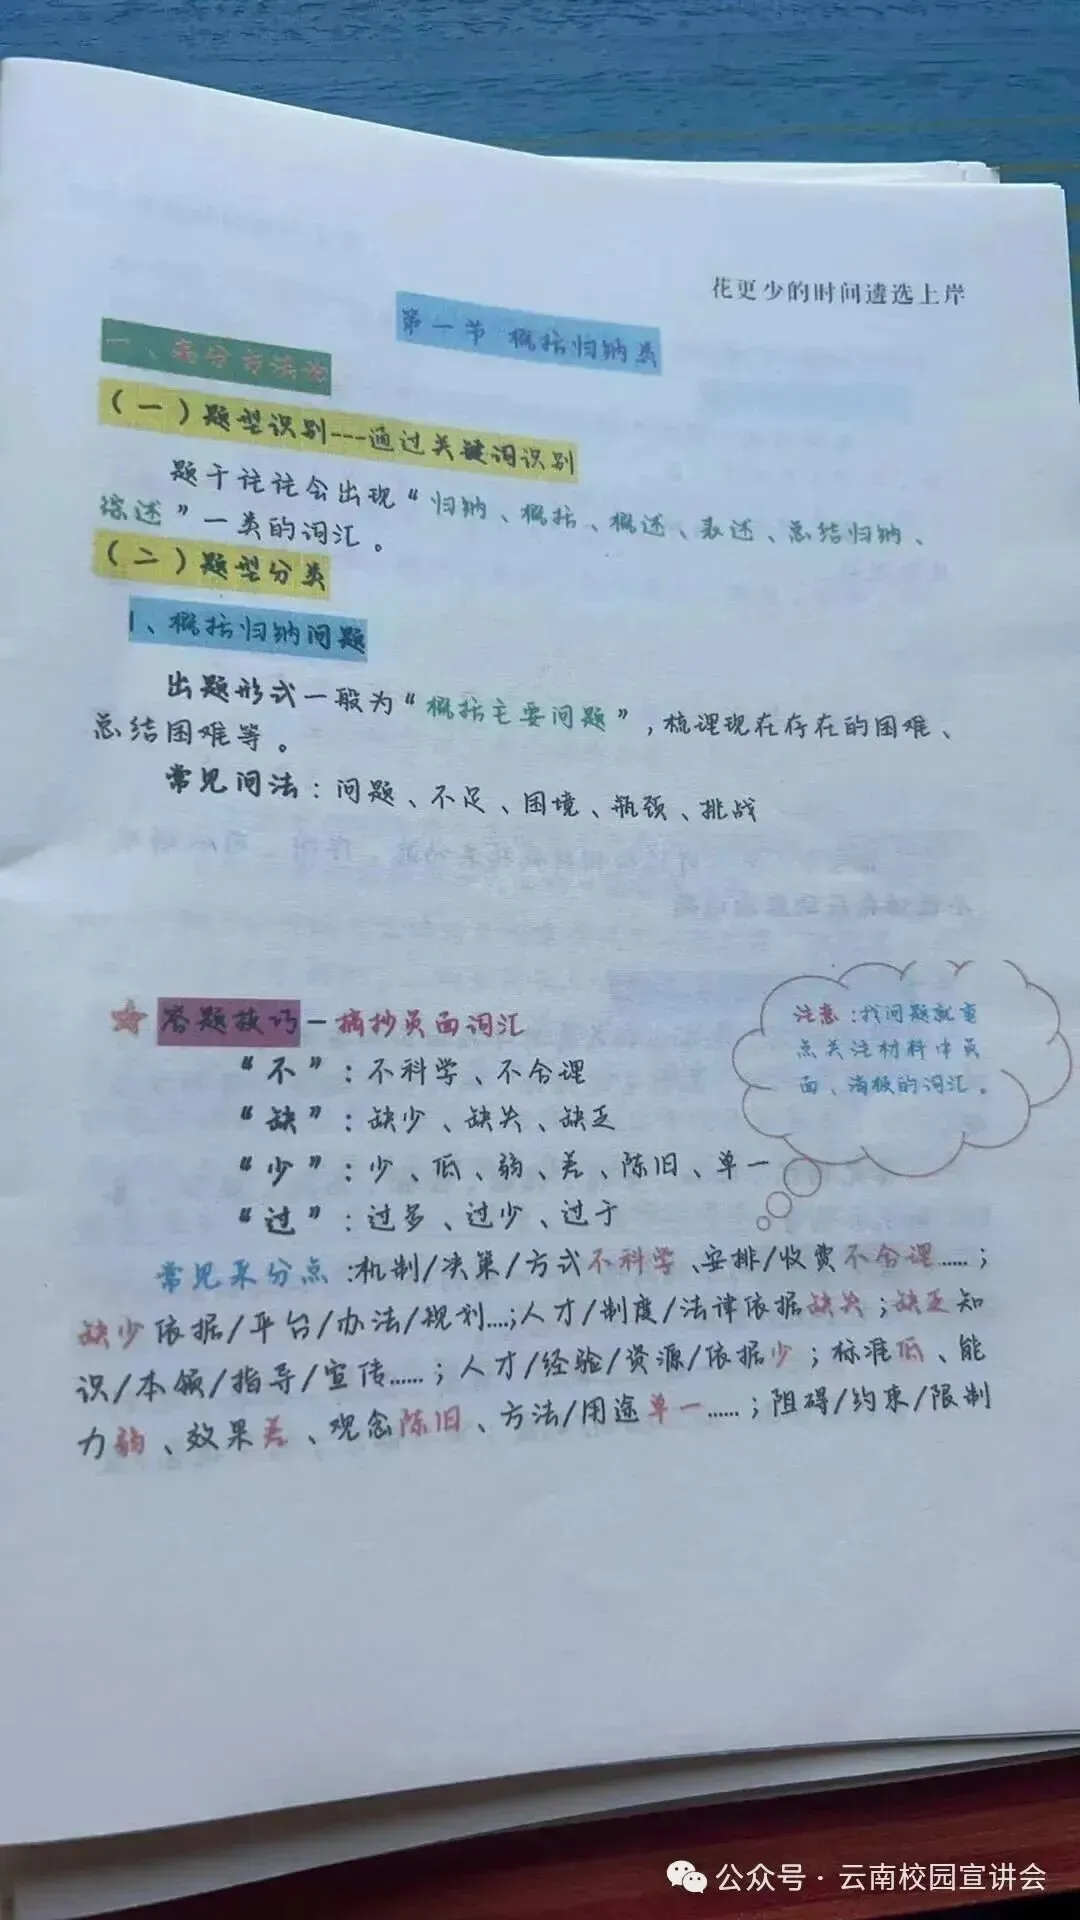 花更少的时间遴选上岸
第一节 概括归纳类
一、高分方法论
（一）题型识别---通过关键词识别
题干往往会出现“归纳、概括、概述、表述、总结归纳、
综述”一类的词汇。
（二）题型分类
1、概括归纳问题
出题形式一般为“概括主要问题”，梳理现在存在的困难、
总结困难等。
常见问法：问题、不足、困境、瓶颈、挑战
答题技巧—摘抄负面词汇
注意：找问题就重
点关注材料中负
面、消极的词汇。
“不”：不科学、不合理
“缺”：缺少、缺失、缺乏
“少”：少、低、弱、差、陈旧、单一
“过”：过多、过少、过于
常见采分点：机制/决策/方式不科学、安排/收费不合理……；
缺少依据/平台/办法/规划….;人才/制度/法律依据缺失；缺乏知
识/本领/指导/宣传……；人才/经验/资源/依据少；标准低、能
力弱、效果差、观念陈旧、方法/用途单一……；阻碍/约束/限制
公众号·云南校园宣讲会